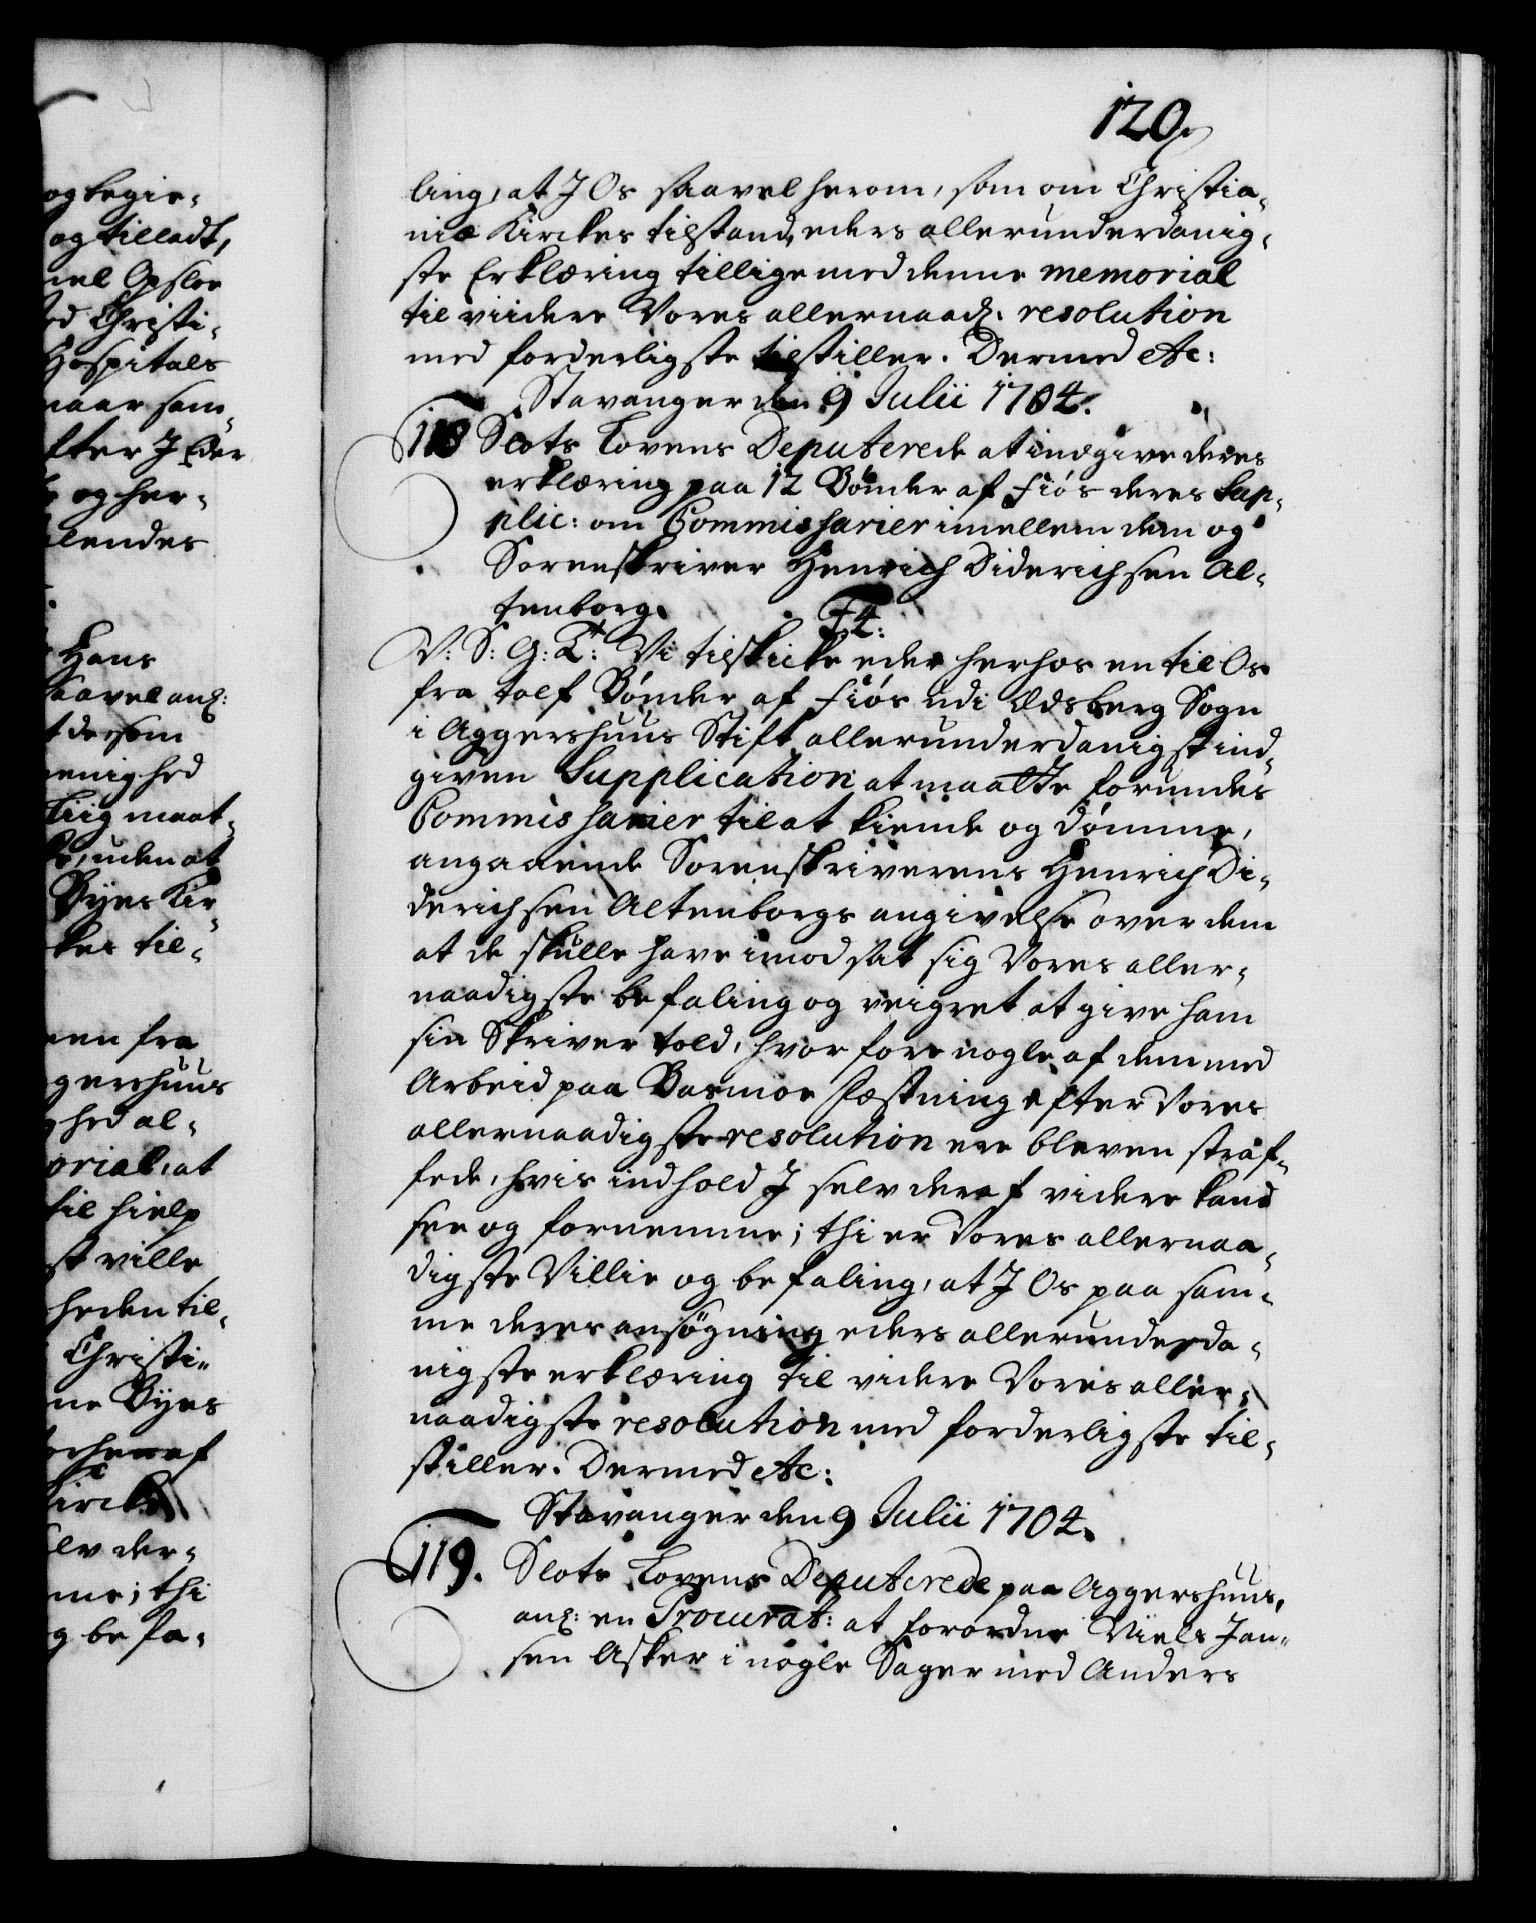 120.
ling, at J Os saavel herom, som om Christia-
niæ Kirckes tilstand, eders allerunderdanig-
ste Erklæring tillige med denne memorial
til viidere Vores allernaad. resolution
med forderligste tilstiller. Dermed &c:
Stavanger den 9 Julii 1704.
118 Slots Lovens Deputerede at indgive deres
erklæring paa 12 Bönder af Fiös deres Sup-
plic: om Commissarier imellem dem og
Sorenskriver Henrich Diderichsen Al-
tenborg.
F4:
V: S: G: T: Vi tilskicke eder herhos en til Os
fra tolf Bönder af Fiös udi Edsberg Sogn
i Aggershuus Stift allerunderdanigst ind-
given Supplication at maatte forundes
Commissarier til at kiende og dömme,
angaaende Sorenskriverens Henrich Di-
derichsen Altenborgs angivelse over dem
at de skulle have imod sat sig Vores aller-
naadigste befaling og veigret at give ham
sin Skriver told, hvor fore nogle af dem med
Arbeid paa Basmoe Fæstning efter Vores
allernaadigste resolution ere bleven straf-
fede, hvis indhold J selv deraf videre kand
see og fornemme; thi er Vores allernaa-
digste Villie og befaling, at J Os paa sam-
me deres ansögning eders allerunderda-
nigste erklæring til videre Vores aller-
naadigste resolution med forderligste til-
stiller. Dermed &c:
Stavanger den 9 Julii 1704.
119. Slots Lovens Deputerede paa Aggershuus,
anl: en Procurat: at forordne Niels Jan-
sen Asker i nogle Sager med Anders
og begie-
og tilladt,
Opsloe
Christi-
Hospitals
naar sam-
efter J Eder
og her-
Hans
saavel anl:
dersom
maat-
uden at
Byes Kir-
kes til-
fra
gershuus
hed al-
orial, at
til hielp
ville
heden til-
Christi-
ne Byes
heraf
Kircke
selv der-
me; thi
g befa-